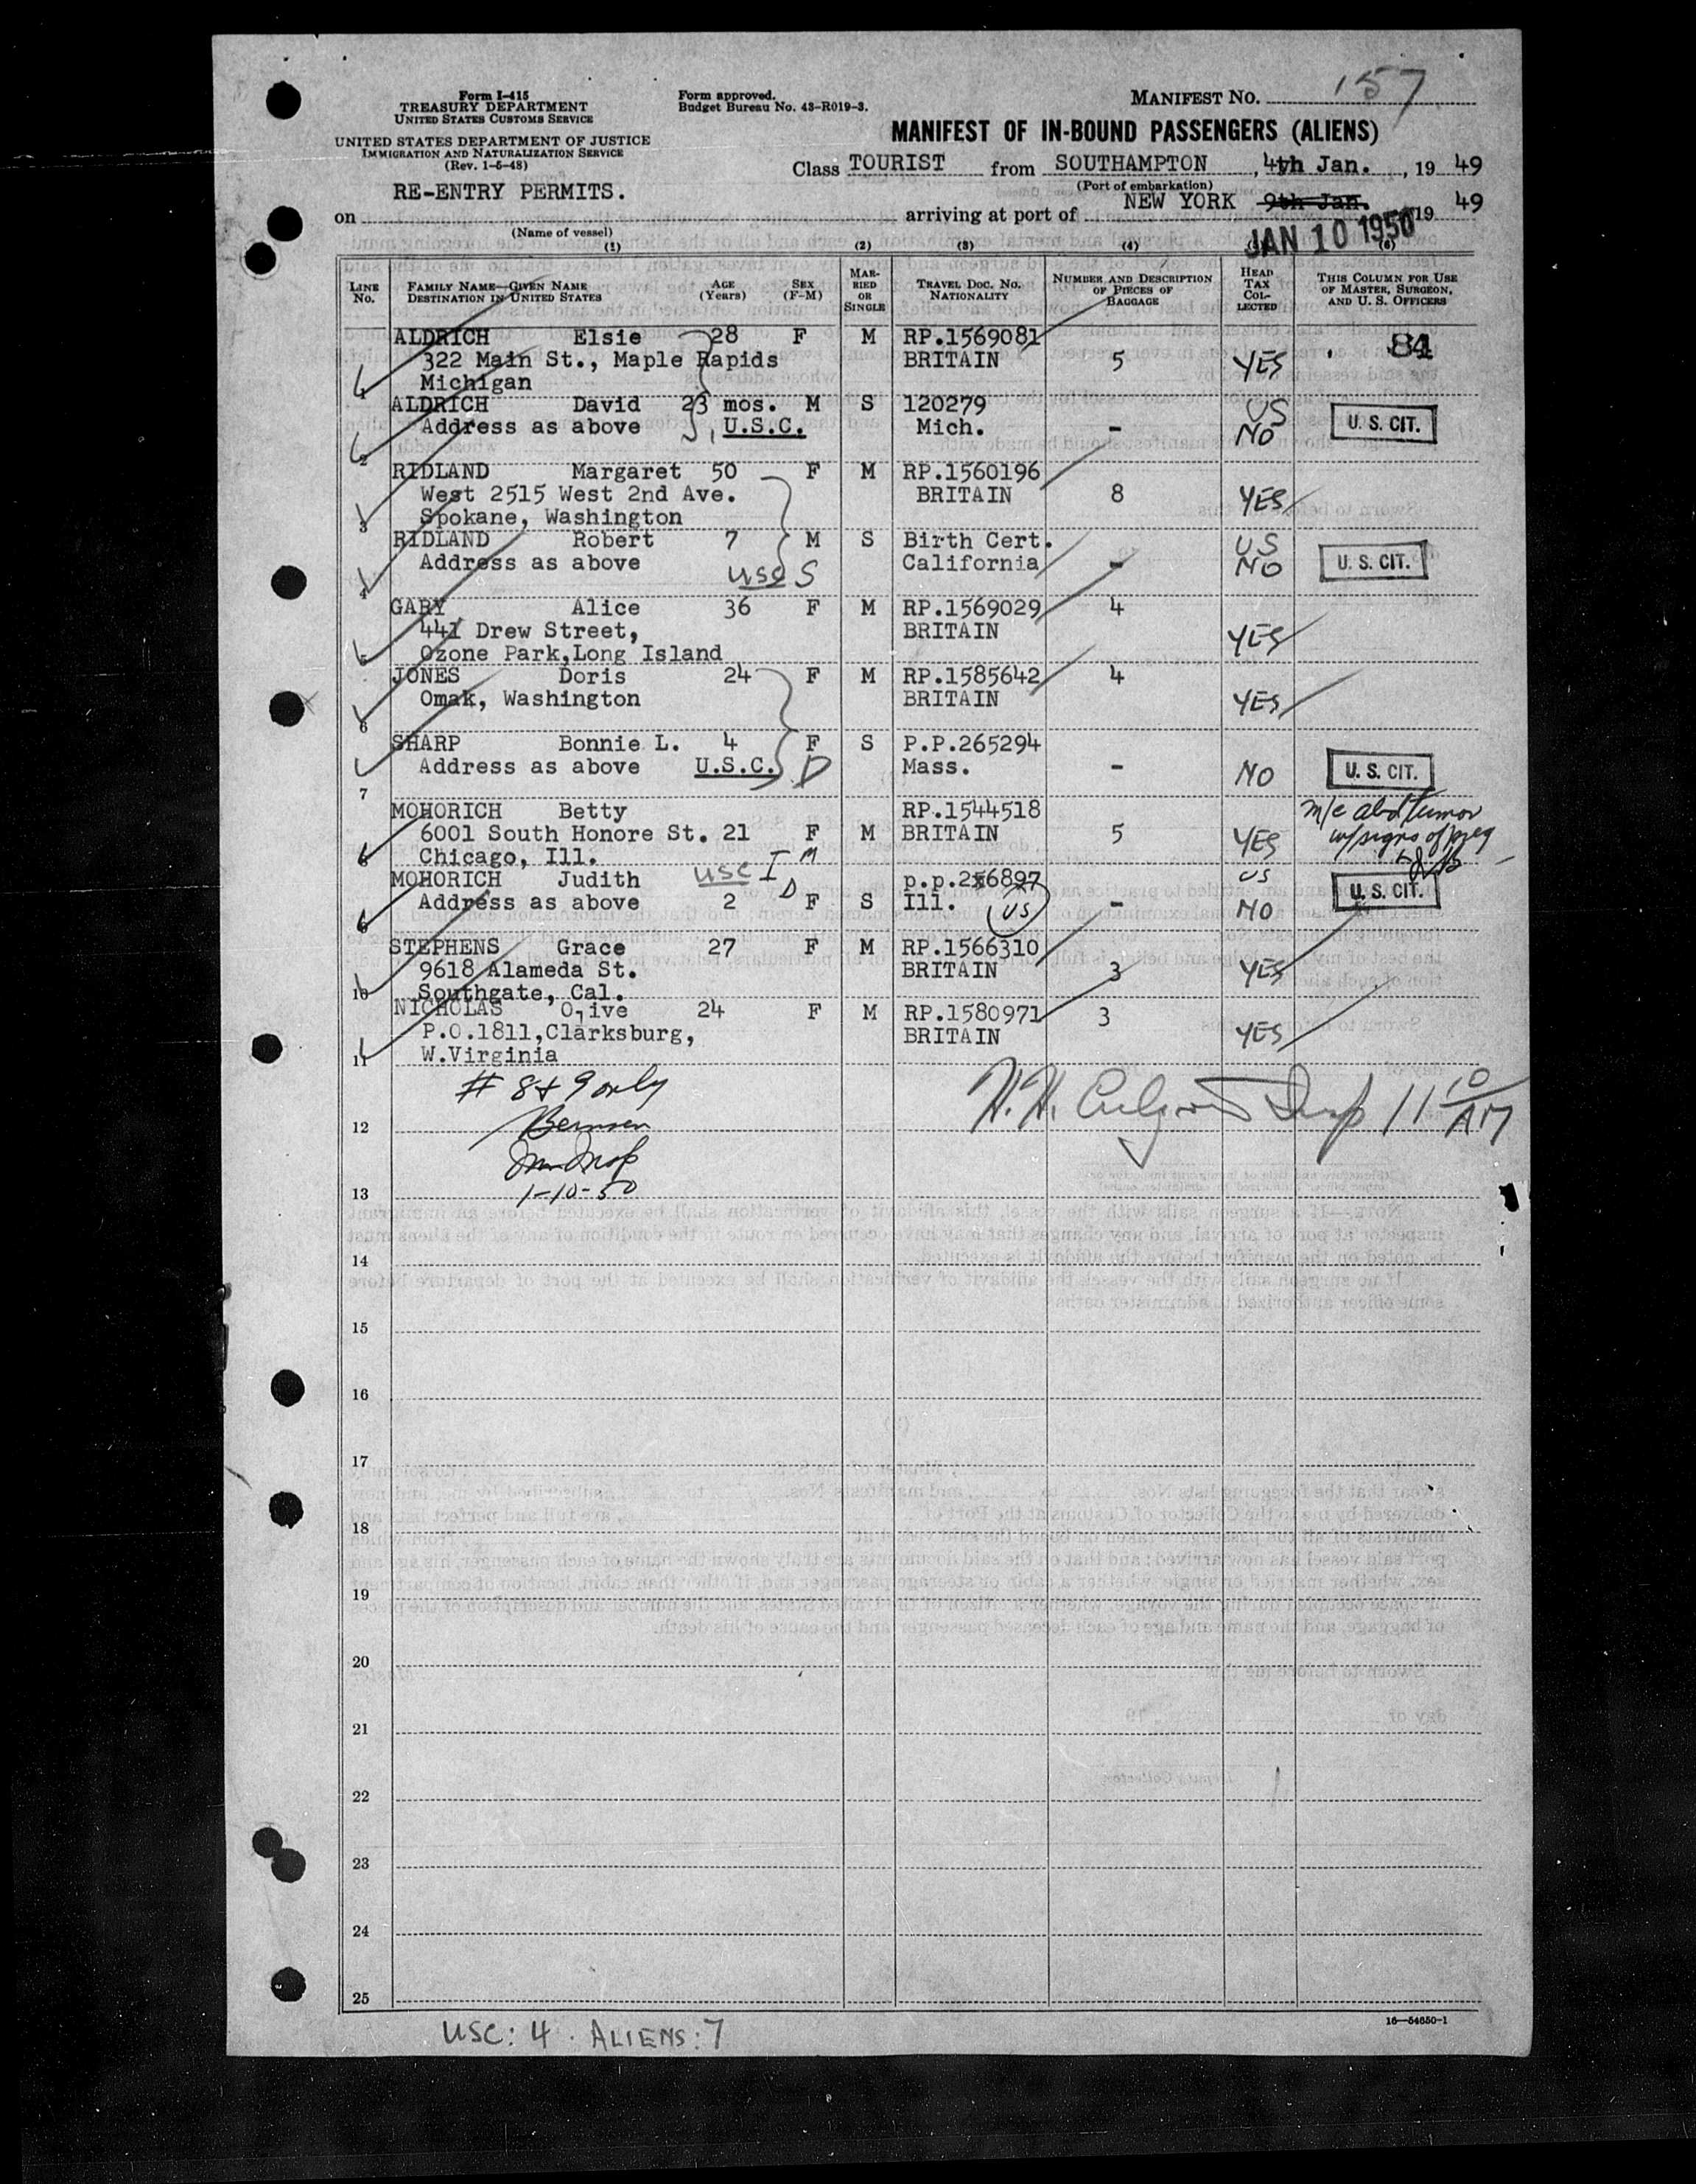 Form I-415
TREASURY DEPARTMENT
UNITED STATES CUSTOMS SERVICE
UNITED STATES DEPARTMENT OF JUSTICE
IMMIGRATION AND NATURALIZATION SERVICE
(Rev. 1-5-48)
Form approved.
Budget Bureau No. 43-R019-3.
MANIFEST NO. 157
MANIFEST OF IN-BOUND PASSENGERS (ALIENS)
Class TOURIST from SOUTHAMPTON, 4th Jan., 19 49
(Port of embarkation)
RE-ENTRY PERMITS.
on arriving at port of NEW YORK 9th Jan. 19 49
(Name of vessel)
JAN 10 1950
(1) (2) (3) (4) (6)
LINE No. FAMILY NAME—GIVEN NAME DESTINATION IN UNITED STATES AGE (Years) SEX (F-M) MARRIED OR SINGLE TRAVEL DOC. NO. NATIONALITY NUMBER AND DESCRIPTION OF PIECES OF BAGGAGE HEAD TAX COLLECTED THIS COLUMN FOR USE OF MASTER, SURGEON, AND U. S. OFFICERS
ALDRICH Elsie 28 F M RP.1569081
322 Main St., Maple Rapids BRITAIN 5 YES 84
1 Michigan
ALDRICH David 23 mos. M S 120279 US
Address as above U.S.C. Mich. - NO U. S. CIT.
2
RIDLAND Margaret 50 F M RP.1560196
West 2515 West 2nd Ave. BRITAIN 8 YES
3 Spokane, Washington
RIDLAND Robert 7 M S Birth Cert. US
Address as above California - NO U. S. CIT.
4 USC S
GARY Alice 36 F M RP.1569029 4
441 Drew Street, BRITAIN YES
5 Ozone Park,Long Island
JONES Doris 24 F M RP.1585642 4
Omak, Washington BRITAIN YES
6
SHARP Bonnie L. 4 F S P.P.265294
Address as above U.S.C. D Mass. - NO U. S. CIT.
7
MOHORICH Betty RP.1544518 m/c abd tumor
6001 South Honore St. 21 F M BRITAIN 5 YES w/signs of preg
8 Chicago, Ill. M
MOHORICH Judith USC I D p.p.256897 US
Address as above 2 F S Ill. US - NO U. S. CIT.
9
STEPHENS Grace 27 F M RP.1566310
9618 Alameda St. BRITAIN 3 YES
10 Southgate, Cal.
NICHOLAS Olive 24 F M RP.1580971 3
P.O.1811,Clarksburg, BRITAIN YES
11 W.Virginia
# 8 & 9 only
12 H. H. Insp 11 10 AM
13 1-10-50
14
15
16
17
18
19
20
21
22
23
24
25
16—54650-1
USC: 4 . ALIENS: 7